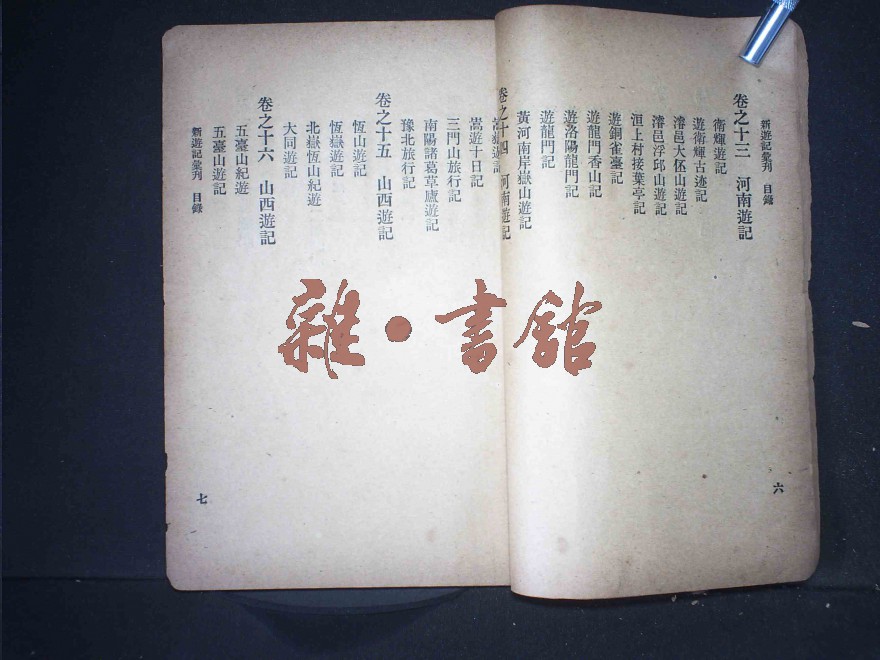 新遊記彙刊　目錄
卷之十三　河南遊記
衛輝遊記
遊衛輝古迹記
濬邑大伾山遊記
濬邑浮邱山遊記
洹上村接葉亭記
遊銅雀臺記
遊龍門香山記
遊洛陽龍門記
遊龍門記
黃河南岸嶽山遊記
卷之十四　河南遊記
六
嵩嶽遊記
嵩遊十日記
三門山旅行記
南陽諸葛草廬遊記
豫北旅行記
卷之十五　山西遊記
恆山遊記
恆嶽遊記
北嶽恆山紀遊
大同遊記
卷之十六　山西遊記
五臺山紀遊
五臺山遊記
新遊記彙刊　目錄
七
雜・書館